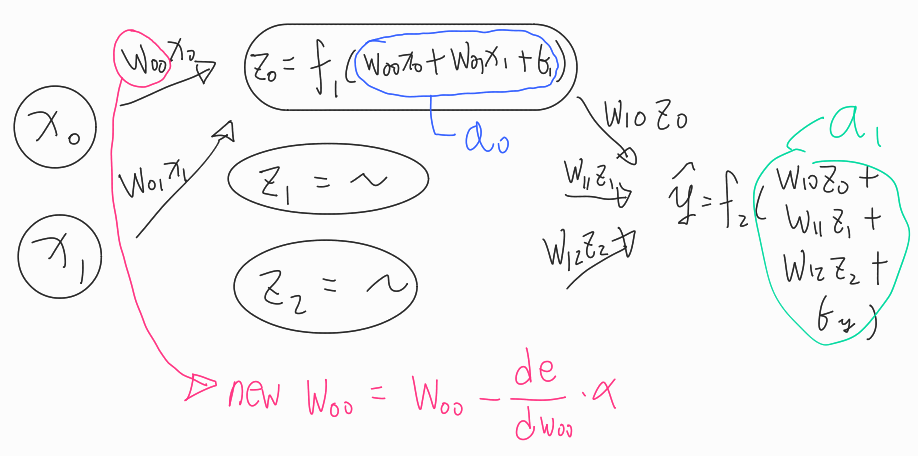 W00x0
z0 = f1(W00x0+W01x1+b1)
a0
x0
W01x1
z1 = ~
x1
z2 = ~
W10z0
W11z1
W12z2
a1
ŷ=f2(W10z0+
W11z1+
W12z2+
by)
new W00 = W00 - de/dw00 · α